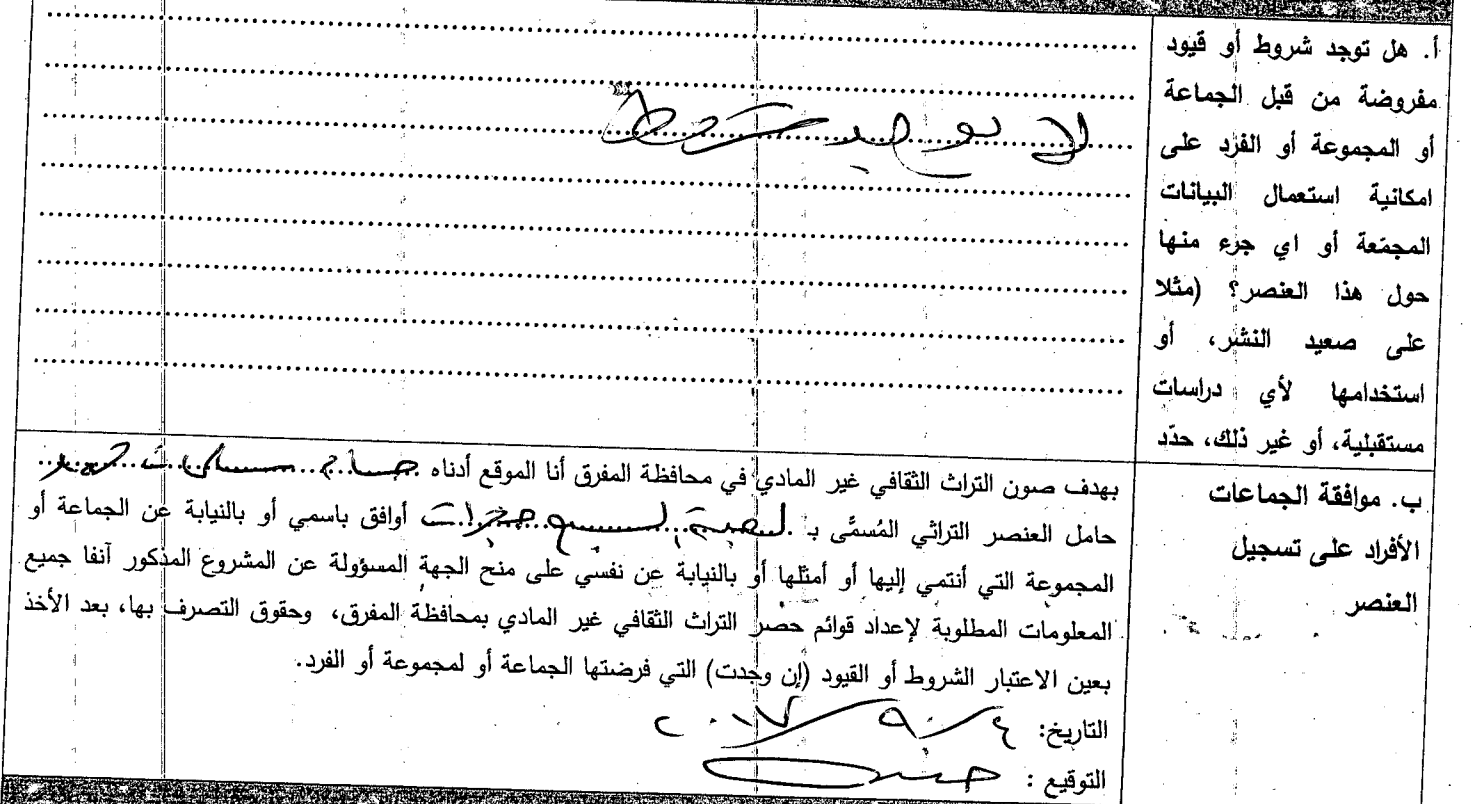 أ. هل توجد شروط أو قيود
مفروضة من قبل الجماعة
أو المجموعة أو الفرد على
امكانية استعمال البيانات
المجمّعة أو اي جزء منها
حول هذا العنصر؟ (مثلا
على صعيد النشر، أو
استخدامها لأي دراسات
مستقبلية، أو غير ذلك، حدّد
لا يوجد شروط
ب. موافقة الجماعات
الأفراد على تسجيل
العنصر
بهدف صون التراث الثقافي غير المادي في محافظة المفرق أنا الموقع أدناه
حامل العنصر التراثي المُسمَّى بـ لعبة السبع حجرات أوافق باسمي أو بالنيابة عن الجماعة أو
المجموعة التي أنتمي إليها أو أمثلها أو بالنيابة عن نفسي على منح الجهة المسؤولة عن المشروع المذكور آنفا جميع
المعلومات المطلوبة لإعداد قوائم حصر التراث الثقافي غير المادي بمحافظة المفرق، وحقوق التصرف بها، بعد الأخذ
بعين الاعتبار الشروط أو القيود (إن وجدت) التي فرضتها الجماعة أو لمجموعة أو الفرد.
التاريخ: ٤/٩/٢٠١٧
التوقيع :